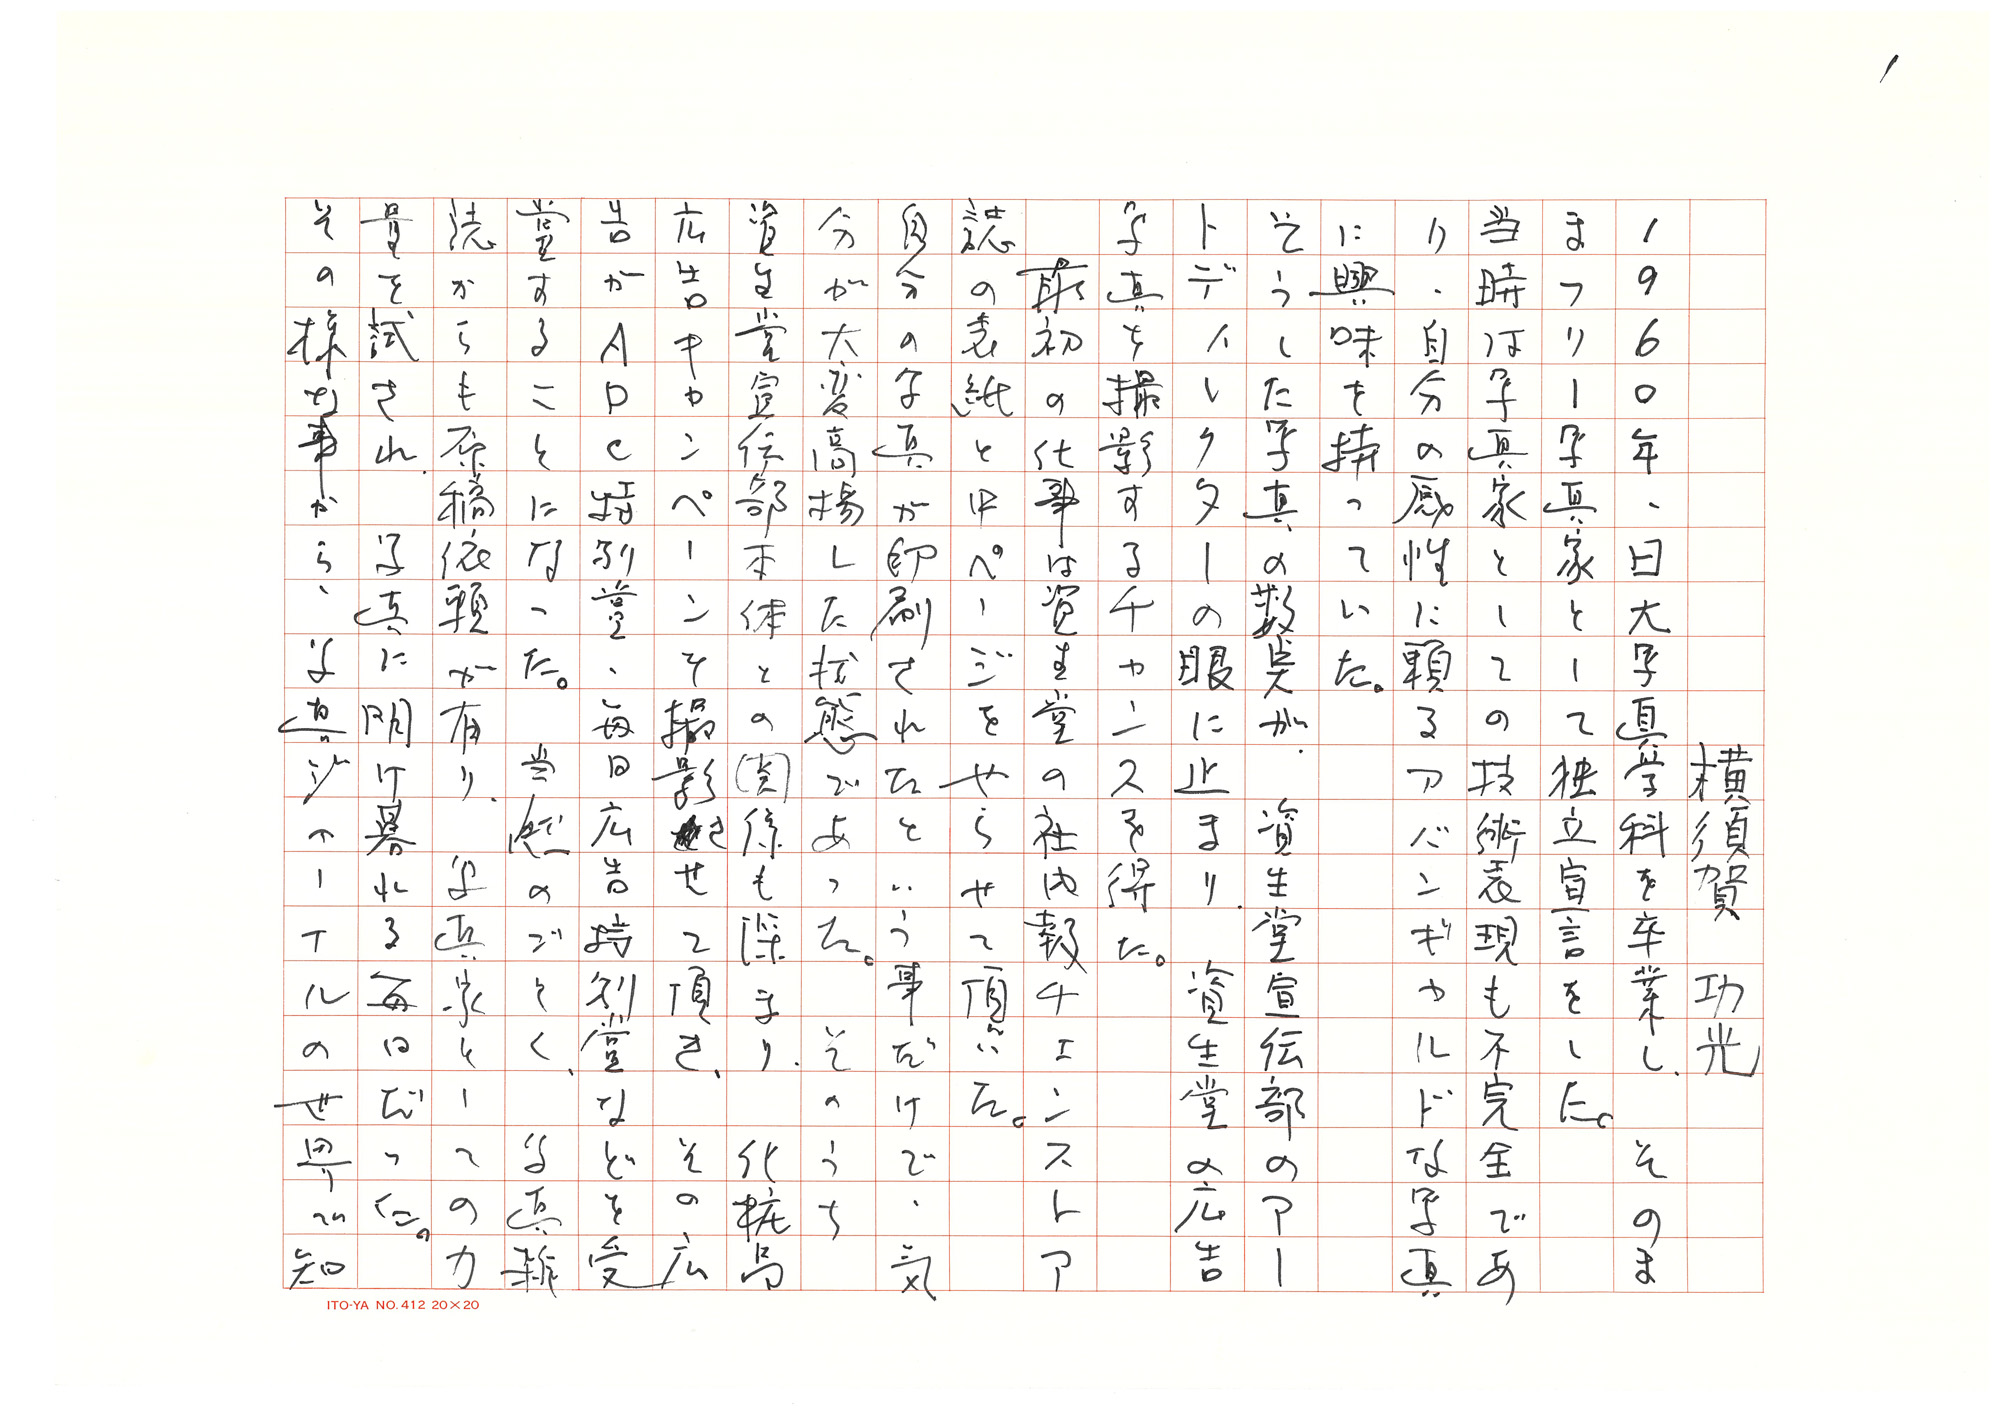 1
横須賀 功光
1960年、日大写真学科を卒業し、そのま
まフリー写真家として独立宣言をした。
当時は写真家としての技術表現も不完全であ
り、自分の感性に頼るアバンギャルドな写真
に興味を持っていた。
そうした写真の数点が、資生堂宣伝部のアー
トディレクターの眼に止まり、資生堂の広告
写真を撮影するチャンスを得た。
最初の仕事は資生堂の社内報チェンストア
誌の表紙と中ページをやらせて頂いた。
自分の写真が印刷されたという事だけで、気
分が大変高揚した状態であった。そのうち
資生堂宣伝部本体との関係も深まり、化粧品
広告キャンペーンその撮影させて頂き、その広
告がADC特別賞、毎日広告特別賞などを受
賞することになった。当然のごとく、写真雑
誌からも原稿依頼が有り、写真家としての力
量を試され、写真に明け暮れる毎日だった。
その様な事から、写真ジャーナルのせ界で知
ITO-YA NO. 412 20×20